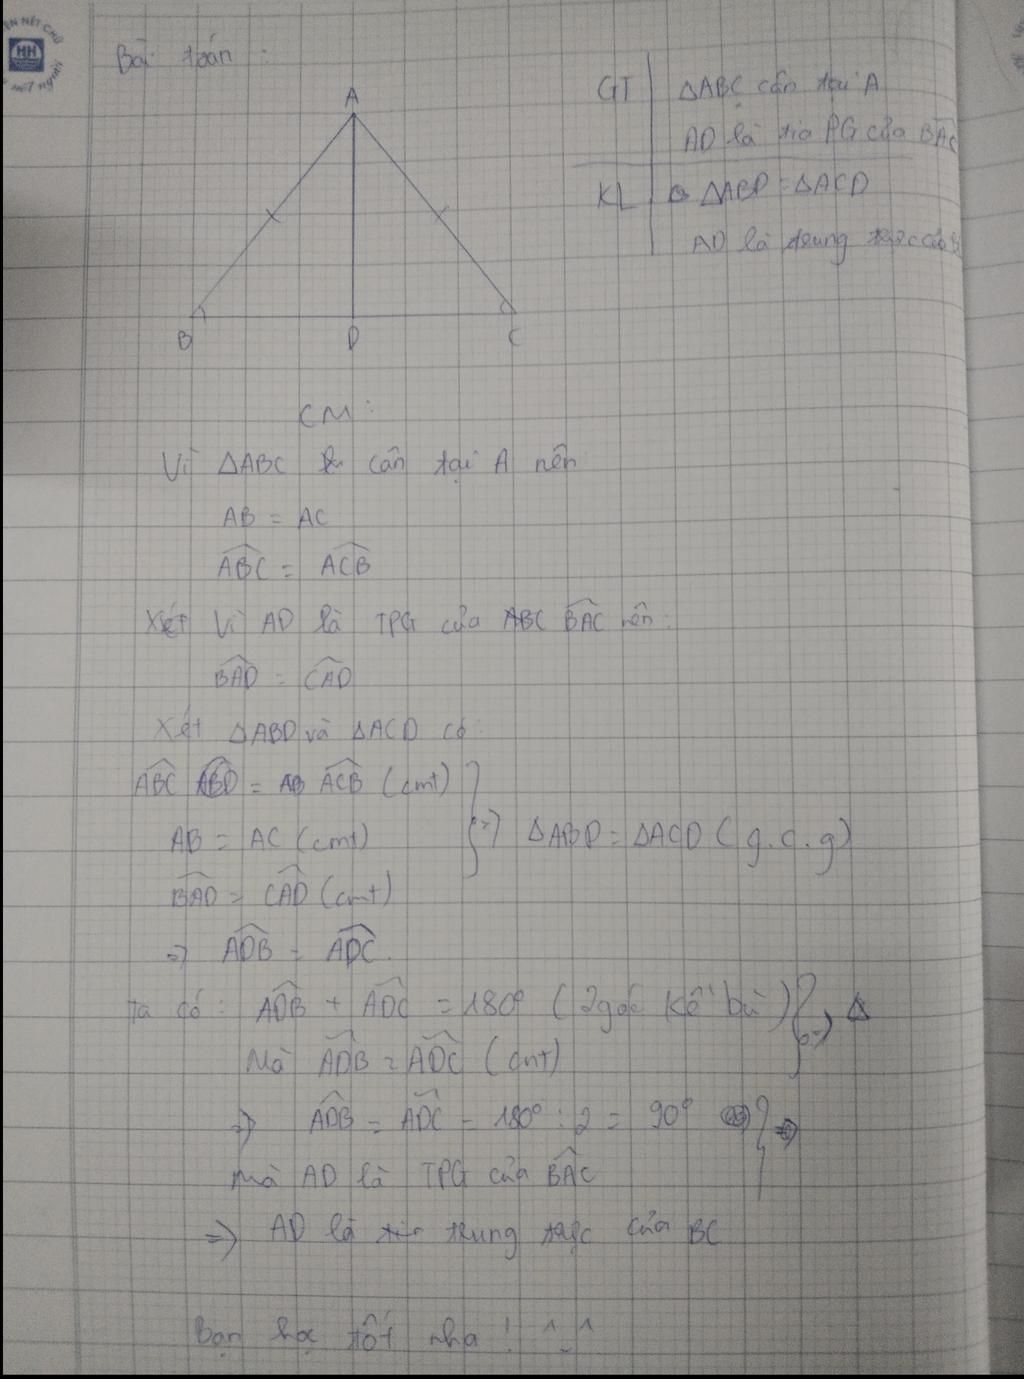 Bài toán :
A
B
D
C
GT
ΔABC cân tại A
AD là tia PG của BAC
KL
ΔABD = ΔACD
AD là trung trực của B
CM :
Vì ΔABC cân tại A nên
AB = AC
ABC = ACB
Xét Vì AD là TPG của ABC BAC nên :
BAD = CAD
Xét ΔABD và ΔACD có :
ABC ABD = AB ACB (cmt)
AB = AC (cmt)
BAD = CAD (cmt)
=> ΔABD = ΔACD ( g.c.g)
=> ADB = ADC.
Ta có : ADB + ADC = 180° ( 2 góc kề bù ) => Δ
Mà ADB = ADC (cmt)
=> ADB = ADC = 180° : 2 = 90° =>
Mà AD là TPG của BAC
=> AD là tia trung trực của BC
Bạn học tốt nha ! ^ _ ^
HH
NÉT CHỮ
NGƯỜI